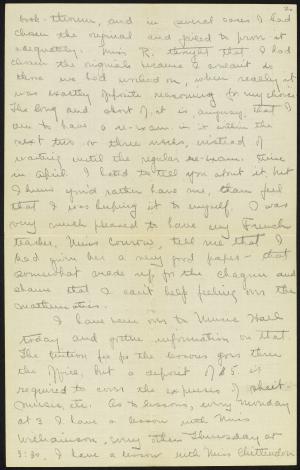 2.
book-theorem, and in several cases I had
chosen the original and failed to prove it
adequately. Miss R. thought that I had
chosen the originals because I couldn't do
those we had worked on, when really it
was exactly opposite reasoning for my choice.
The long and short of it is, anyway, that I
am to have a re-exam. in it within the
next two or three weeks, instead of
waiting until the regular re-exam. time
in April. I hated to tell you about it, but
I knew you'd rather have me, than feel
that I was keeping it to myself. I was
very much pleased to have my French
teacher, Miss, tell me that I
had given her a very good paper - that
somewhat made up for the chagrin and
shame that I can't help feeling over the
mathematics.
I have been over to Music Hall
today and gotten information on that.
The tuition fee for the lessons goes thru
the office, but a deposit of $5. is
required to cover the expenses of sheet-
music, etc. As to lessons, every Monday
at 3 I have a lesson with Miss
Williamson, every other Thursday at
3:30 I have a lesson with Miss Chittenden